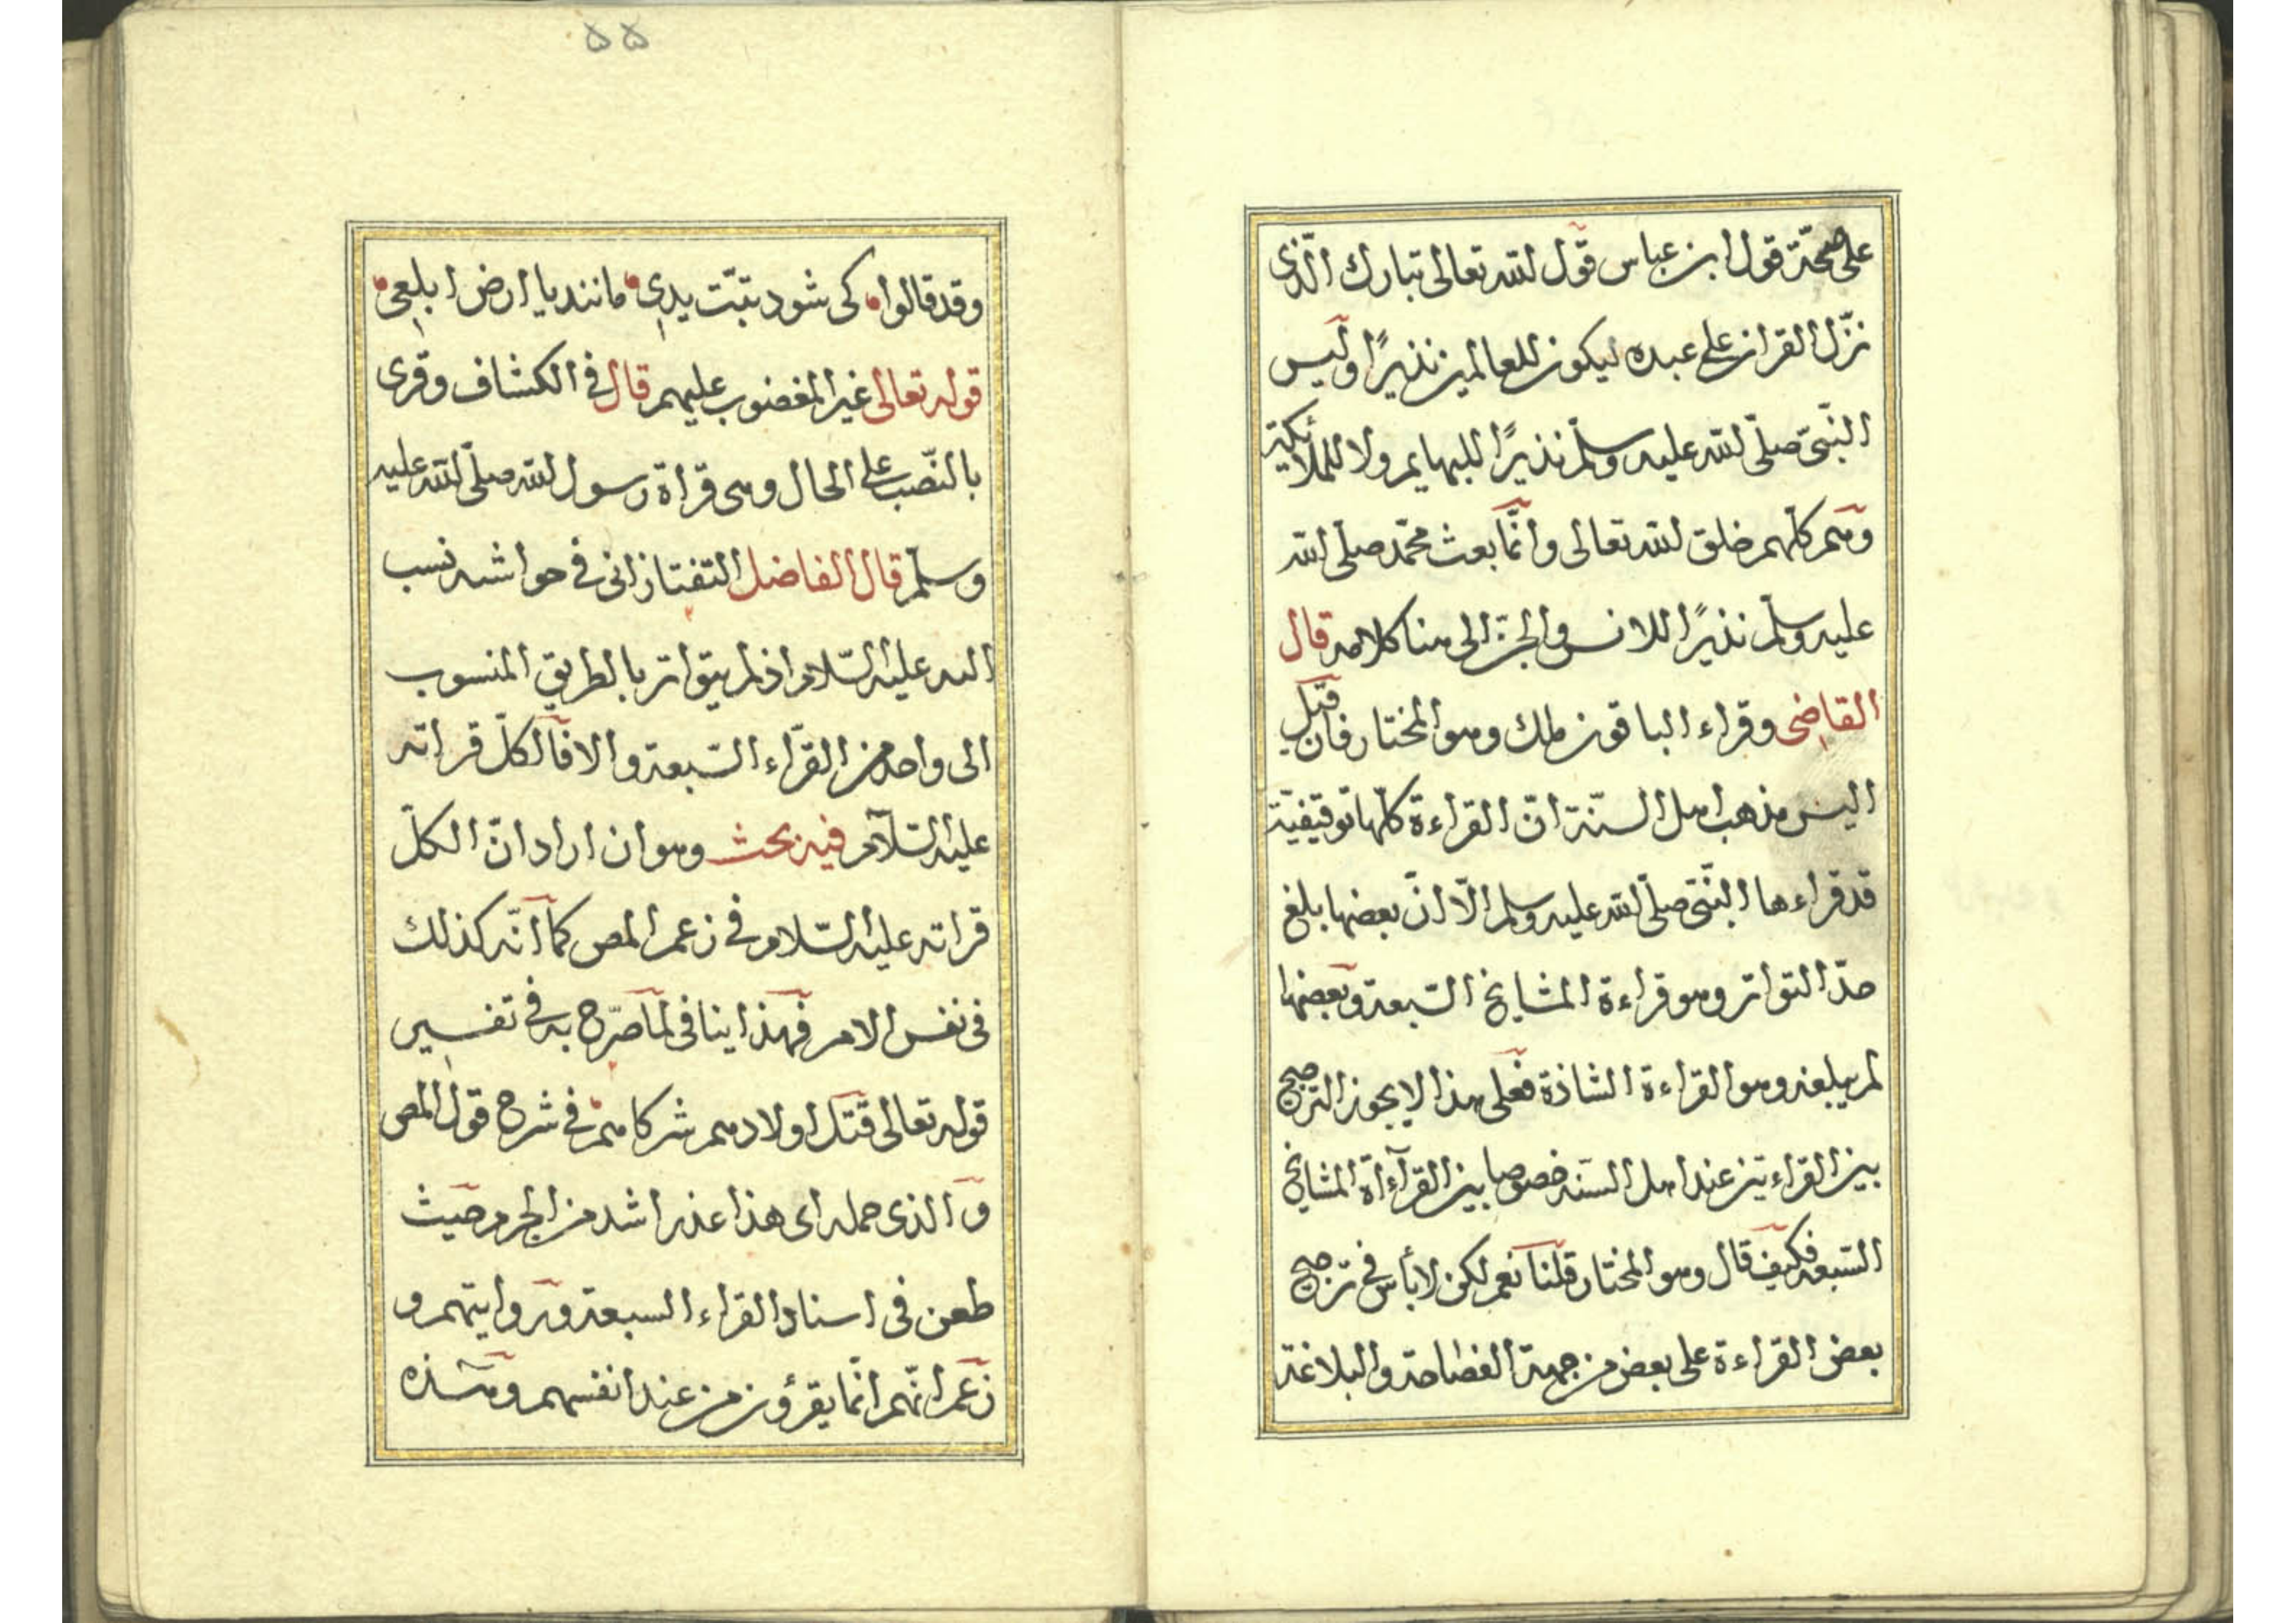 على صحّة قول ابن عباس قول الله تعالى تبارك الّذى
نزّل القران على عبده ليكون للعالمين نذيرًا وليس
النّبىّ صلّى الله عليه وسلّم نذيرًا للبهايم ولا للملائكة
وهم كلّهم خلق الله تعالى وانّما بعث محمّد صلّى الله
عليه وسلّم نذيرًا للانس والجنّ الى هنا كلامه قال
القاضى وقراء الباقون ملك وهو المختار فان قيل
اليس مذهب اهل السنّة انّ القراءة كلّها توقيفيّة
قد قراءها النّبىّ صلّى الله عليه وسلم الّا انّ بعضها بلغ
حدّ التواتر وهو قراءة المشايخ السّبعة وبعضها
لم يبلغه وهو القراءة الشاذة فعلى هذا لا يجوز الترجيح
بين القراءتين عند اهل السّنه خصوصا بين القرآاة المشايخ
السّبعه فكيف قال وهو المختار قلنا نعم لكن لا بأس فى ترجيح
بعض القراءة على بعض من جهة الفصاحة والبلاغة
٥٥
وقد قالوا كى شود تبّت يدى مانند يا ارض ابلعى
قوله تعالى غير المغضوب عليهم قال فى الكشاف وقرى
بالنّصب على الحال وهى قراة رسول الله صلّى الله عليه
وسلّم قال الفاضل التفتازانى فى حواشه نسب
اليه عليه السّلام اذ لم يتواتر بالطريق المنسوب
الى واحد من القرّاء السّبعة والا فالكلّ قراته
عليه السّلام فيه بحث وهو ان اراد انّ الكلّ
قراته عليه السّلام فى زعم المص كما انّه كذلك
فى نفس الامر فهذا ينافى لما صرّح به فى تفسير
قوله تعالى قتل اولادهم شركاهم فى شرح قول المص
والذى حمله اى هذا عذر اشد من الجرم حيث
طعن فى اسناد القراء السبعة وروايتهم و
زعم انّهم انّما يقرؤن من عند انفسهم وهذه